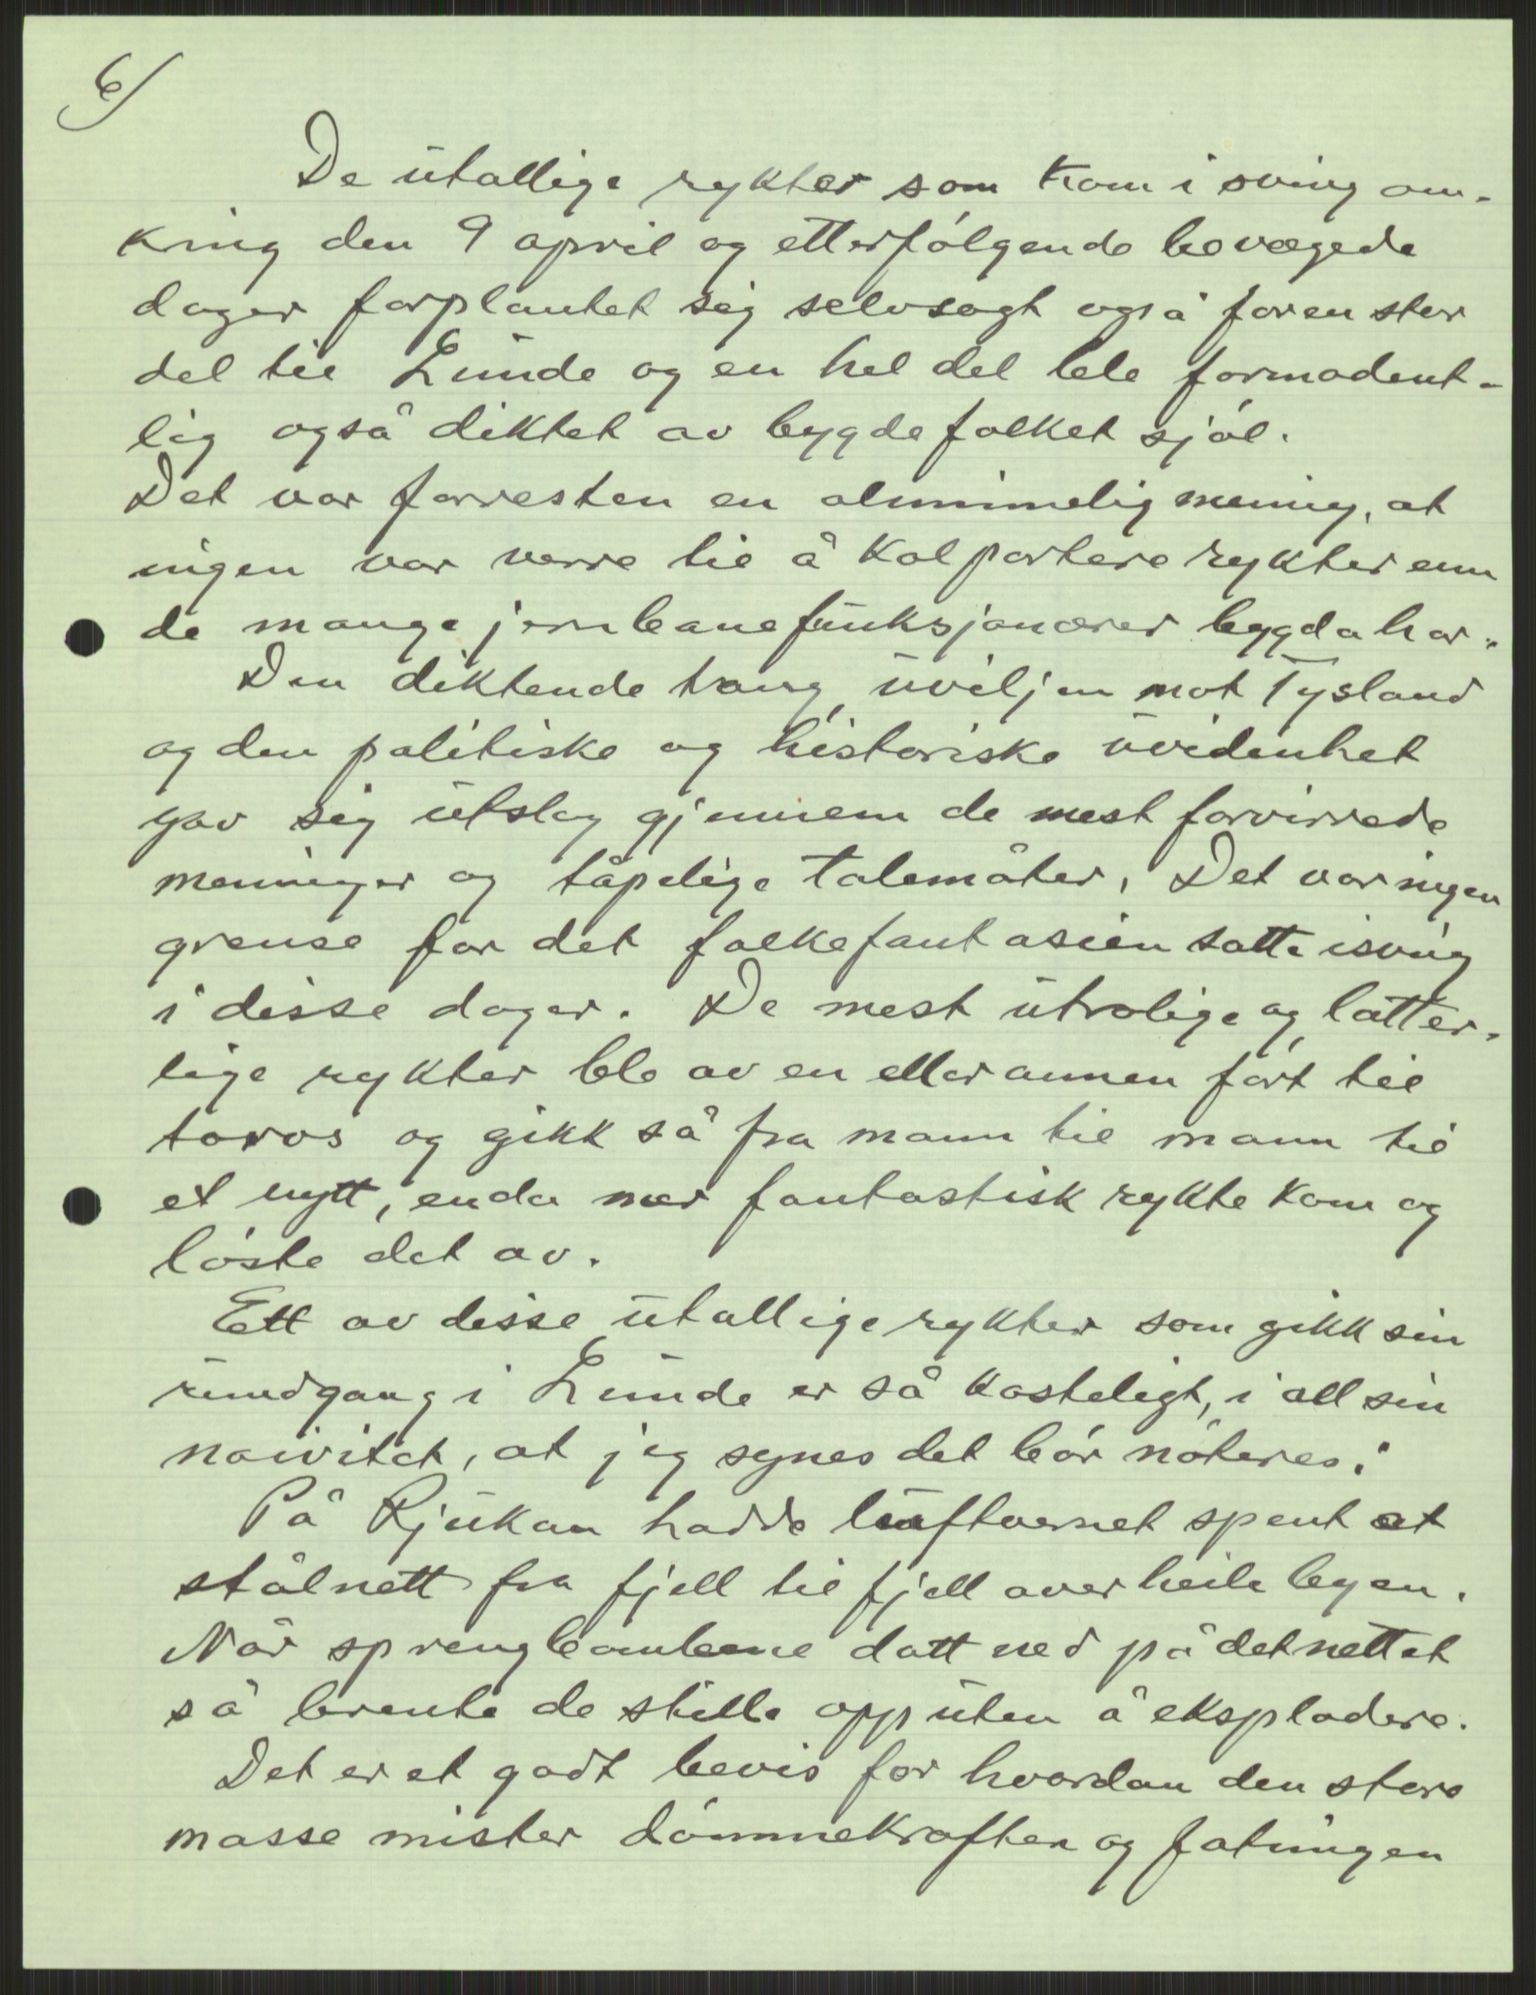 6)
De utallige rykter som kom i sving om-
kring den 9 april og etterfölgende bevægede
dager forplantet sig selvsagt også for en stor
del til Lunde og en hel del ble formodent-
lig også diktet av bygdefolket sjöl.
Det var forresten en almminnelig mening, at
ingen var verre til å kolportere rykter enn
de mange jernbanefunksjonærer bygda har.
Den diktende trang, uviljen mot Tysland
og den politiske og historiske uvidenhet
gav sig utslag gjennem de mest forvirrede
meninger og tåpelige talemåter. Det var ingen
grense for det folkefantasien satte isving
i disse dager. De mest utrolige og latter-
lige rykter ble av en eller annen fört til
torvs og gikk så fra mann til mann til
et nytt, enda mer fantastisk rykte kom og
löste det av.
Ett av disse utallige rykter som gikk sin
rundgang i Lunde er så kosteligt, i all sin
naivitet, at jeg synes det bör noteres:
På Rjukan hadde luftvernet spent et
stålnett fra fjell til fjell over heile byen.
Når sprengbombene datt ned på det nettet
så brente de stille opp uten å eksplodere.
Det er et godt bevis for hvordan den store
masse mister dömmekraften og fatningen